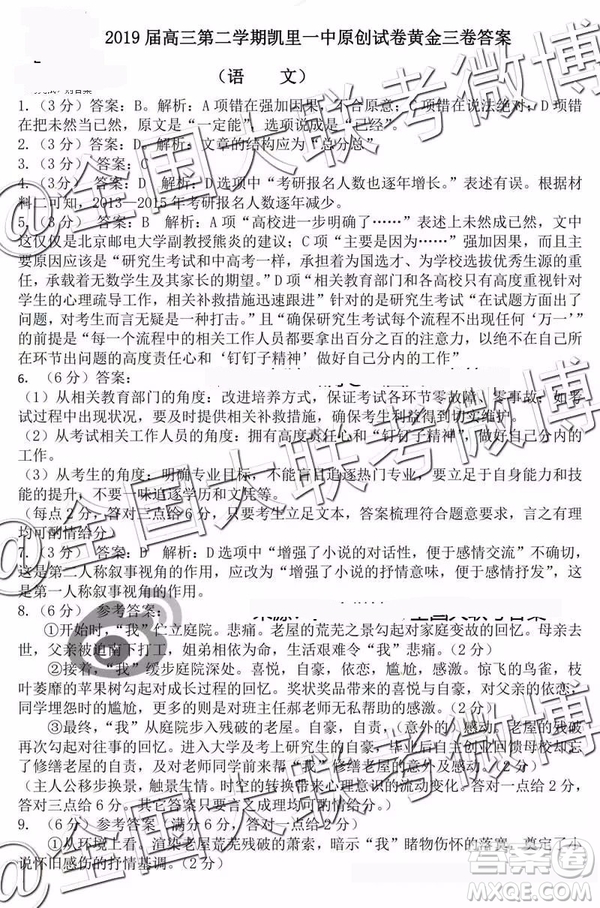 2019届高三第二学期凯里一中原创试卷黄金三卷答案
（语 文）
1.（3分）答案：B。解析：A项错在强加因果，不合原意；C项错在说法绝对；D项错
在把未然当已然，原文是“一定能”，选项说成是“已经”。
2.（3分）答案：D 解析：文章的结构应为“总分总”
3.（3分）答案：
4.（3分）答案： “考研报名人数也逐年增长。”表述有误。根据材
料二可知，2013—2015年考研报名人数逐年减少。
5.（3分）答案：B 解析：A项“高校进一步明确了……”表述上未然成已然，文中
这仅仅是北京邮电大学副教授熊炎的建议；C项“主要是因为……”强加因果，而且
主要原因应该是“研究生考试和中高考一样，承担着为国选才、为学校选拔优秀生源的重
任，承载着无数学生及其家长的期望。”D项“相关教育部门和各高校只有高度重视针对
学生的心理疏导工作，并相关补救措施减少生源流失”针对的是研究生“在试题方面出了
问题，对考生而言无疑是一种打击。”且“确保研究生考试每个流程不出现任何‘万一’”
的前提是“每一个流程的相关工作人员都要拿出百分之百的注意力，以绝不容忍自己所
在环节出问题的高度责任心和‘钉钉子精神’做好自己分内的工作”
6.（6分）答案：
（1）从相关教育部门的角度：改进培养方式，保证考试各环节零故障、零事故；如考
试过程中出现故障，应及时提供相关补救措施，确保考生利益得到切实保障。
（2）从考试相关工作人员的角度：拥有高度责任心和“钉钉子精神”，做好自己分内的
工作。
（3）从考生的角度：明确专业目标，不能盲目追逐热门专业，要立足于自身能力与技
能的提升，不要一味追逐学历和文凭等。
（每点2分，答对三点给6分，结合文本言之成理，答案梳理符合题意要求，言之有理
均可酌情给分）
7.（3分）答案：D 解析：D选项中“增强了小说的对话性，便于感情交流”不对，
这是第二人称叙事视角的作用，应改为“增强了小说的抒情意味，便于抒发感情”。
8.（6分） 参考答案：
①开始时，“我”伫立庭院。悲痛。老屋的荒芜之景勾起对家庭变故的回忆。母亲去
世，父亲被迫南下打工，姐弟相依为命，生活艰难令“我”悲痛。（2分）
②接着，“我”缓步庭院深处。喜悦，自豪，欣喜，尴尬，感激。惊飞的鸟雀，枝
叶萎靡的苹果树勾起对成长过程的回忆。奖状奖品带来的喜悦和自豪，作文受表扬和
同学埋怨时的尴尬，以及对班主任郝老师无私帮助的感激。（2分）
③最终，“我”从庭院外步入残破的老屋。自豪，自责，无奈和伤感。老屋的残破
再次勾起对工作经历的回忆。进入大学及考上研究生的自豪，毕业后未能回馈母校和未
了修缮老屋心愿的自责，老屋虽破却又不忍修缮的无奈和伤感。（2分）
（主人公移步换景，触景生情。时空的转换带来心理意识的流动与变化。答对一点给2
分，答对三点给6分。其它答案只要符合文意亦可酌情给分。）
9.（6分）参考答案（满分6分，答对一点给2分）
①从环境上看，渲染老屋荒芜萧瑟残破的萧索，暗示“我”触景伤怀的落寞，奠定了小
说怀旧感伤的抒情基调。（2分）
@全国大联考微博